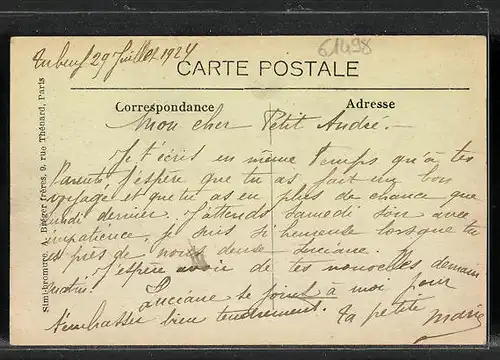 29 Juillet 1924
61498
CARTE POSTALE
Correspondance
Adresse
Simili-bromure, A. Breger frères, 9, rue Thénard, Paris
Mon cher Petit André.
Je t'écris en même temps qu'à tes
Parents. J'espère que tu as fait un bon
voyage et que tu as eu plus de chance que
lundi dernier. J'attends samedi soir avec
impatience, je suis si heureuse lorsque tu
es près de nous deux Luciane.
J'espère avoir de tes nouvelles demain
matin.
Luciane se joint à moi pour
t'embrasser bien tendrement. Ta petite
Marie